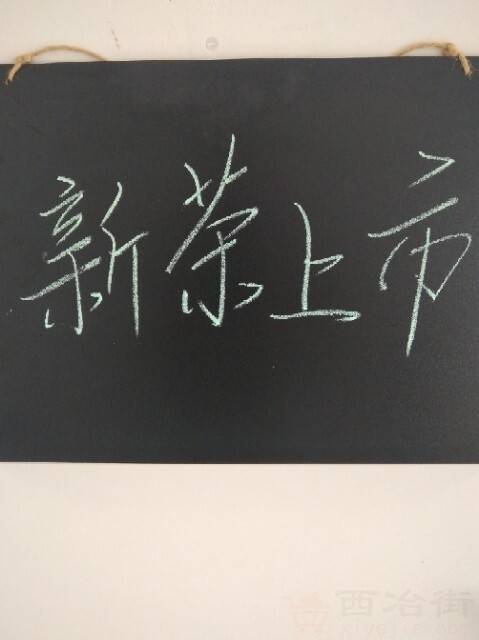 新茶上市
西冶街